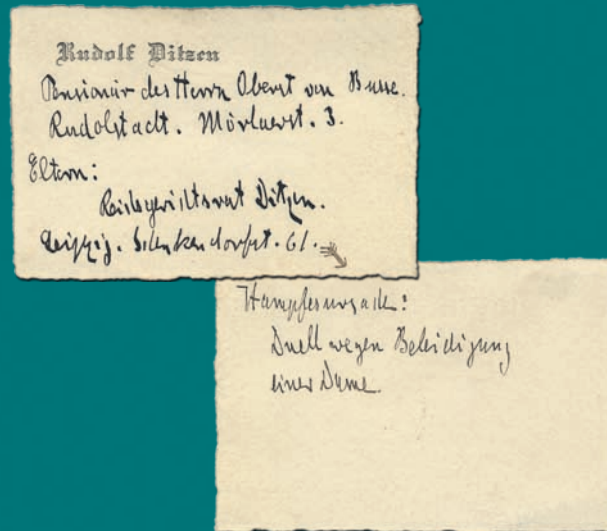 Rudolf Ditzen
Pensionär des Herrn Oberst von Busse.
Rudolstadt. Mörlaerst. 3.
Eltern:
Reichsgerichtsrat Ditzen.
Leipzig. Schenkendorfst. 61.
Kampfesursache:
Duell wegen Beleidigung
einer Dame.